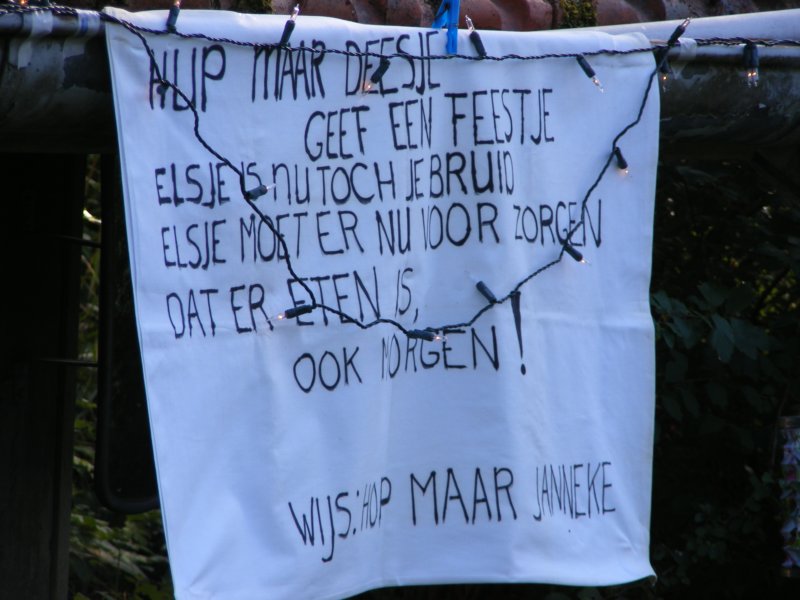 HUP MAAR DEESJE
GEEF EEN FEESTJE
ELSJE IS NU TOCH JE BRUID
ELSJE MOET ER NU VOOR ZORGEN
DAT ER ETEN IS,
OOK MORGEN!
WIJS: HOP MAAR JANNEKE